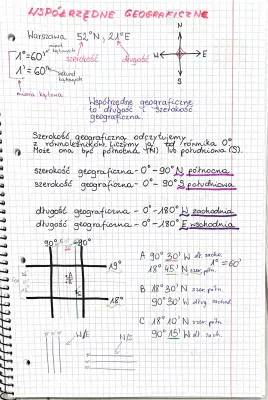 WSPÓŁRZĘDNE GEOGRAFICZNE
Warszawa 52°N, 21°E
szerokość długość
minut kątowych
1°=60'
1'=60"
sekund kątowych
miara kątowa
N
W E
S
Współrzędne geograficzne
to długość i szerokość
geograficzna.
Szerokość geograficzną odczytujemy
z równoleżników. Liczymy ją od równika 0°
Może ona być północna (N) lub południowa (S).
szerokość geograficzna - 0° - 90° N północna
szerokość geograficzna - 0° - 90° S południowa
długość geograficzna - 0° - 180° W zachodnia
długość geograficzna - 0° - 180° E wschodnia
90° 90°
19°
18°
A 90° 30' W dł. zach.
1° = 60'
18° 45' N szer. półn.
B 18° 30' N szer. półn.
90° 30' W dług. zachod.
C 18° 10' N szer. półn.
90° 15' W dł. zach.
W/E
N/S